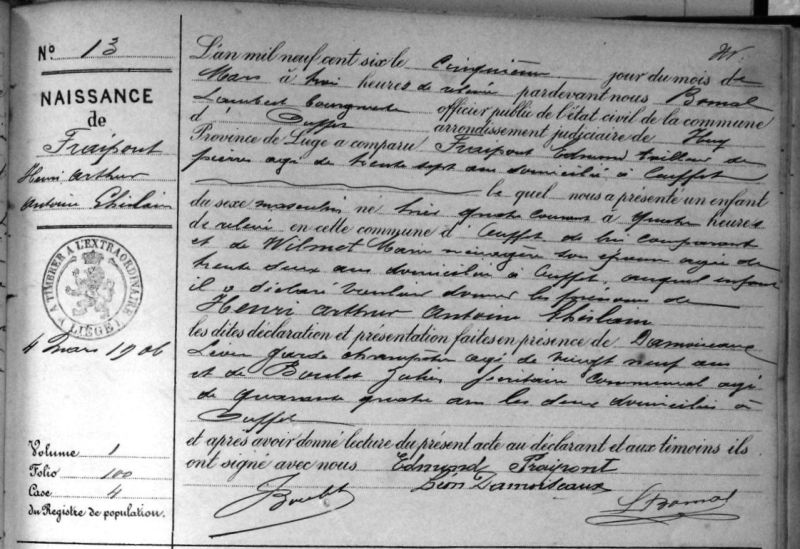 N° 13
NAISSANCE
de
Fraipont
Henri Arthur
Antoine Ghislain
A TIMBRER A L'EXTRAORDINAIRE
LIÉGE
4 mars 1906
Volume 1
Folio 100
Case 4
du Registre de population.
L'an mil neuf cent six le cinquième jour du mois de
Mars à trois heures de relevée pardevant nous Bomal
Lambert bourgmestre officier public de l'état civil de la commune
d' Ouffet arrondissement judiciaire de Huy
Province de Liége a comparu Fraipont Edmond tailleur de
pierres agé de trente sept ans domicilié à Ouffet
le quel nous a présenté un enfant
du sexe masculin né hier quatre courant à quatre heures
de relevée en cette commune d' Ouffet de lui comparant
et de Wilmet Marie ménagère son épouse agée de
trente deux ans domiciliée à Ouffet, auquel enfant
il a déclaré vouloir donner les prénoms de
Henri Arthur Antoine Ghislain
les dites déclaration et présentation faites en présence de Damoiseaux
Léon garde champêtre agé de vingt neuf ans
et de Boulet Jules secrétaire communal agé
de quarante quatre ans les deux domiciliés à
Ouffet
et après avoir donné lecture du présent acte au déclarant et aux témoins ils
ont signé avec nous Edmond Fraipont
Boulet Léon Damoiseaux L Bomal